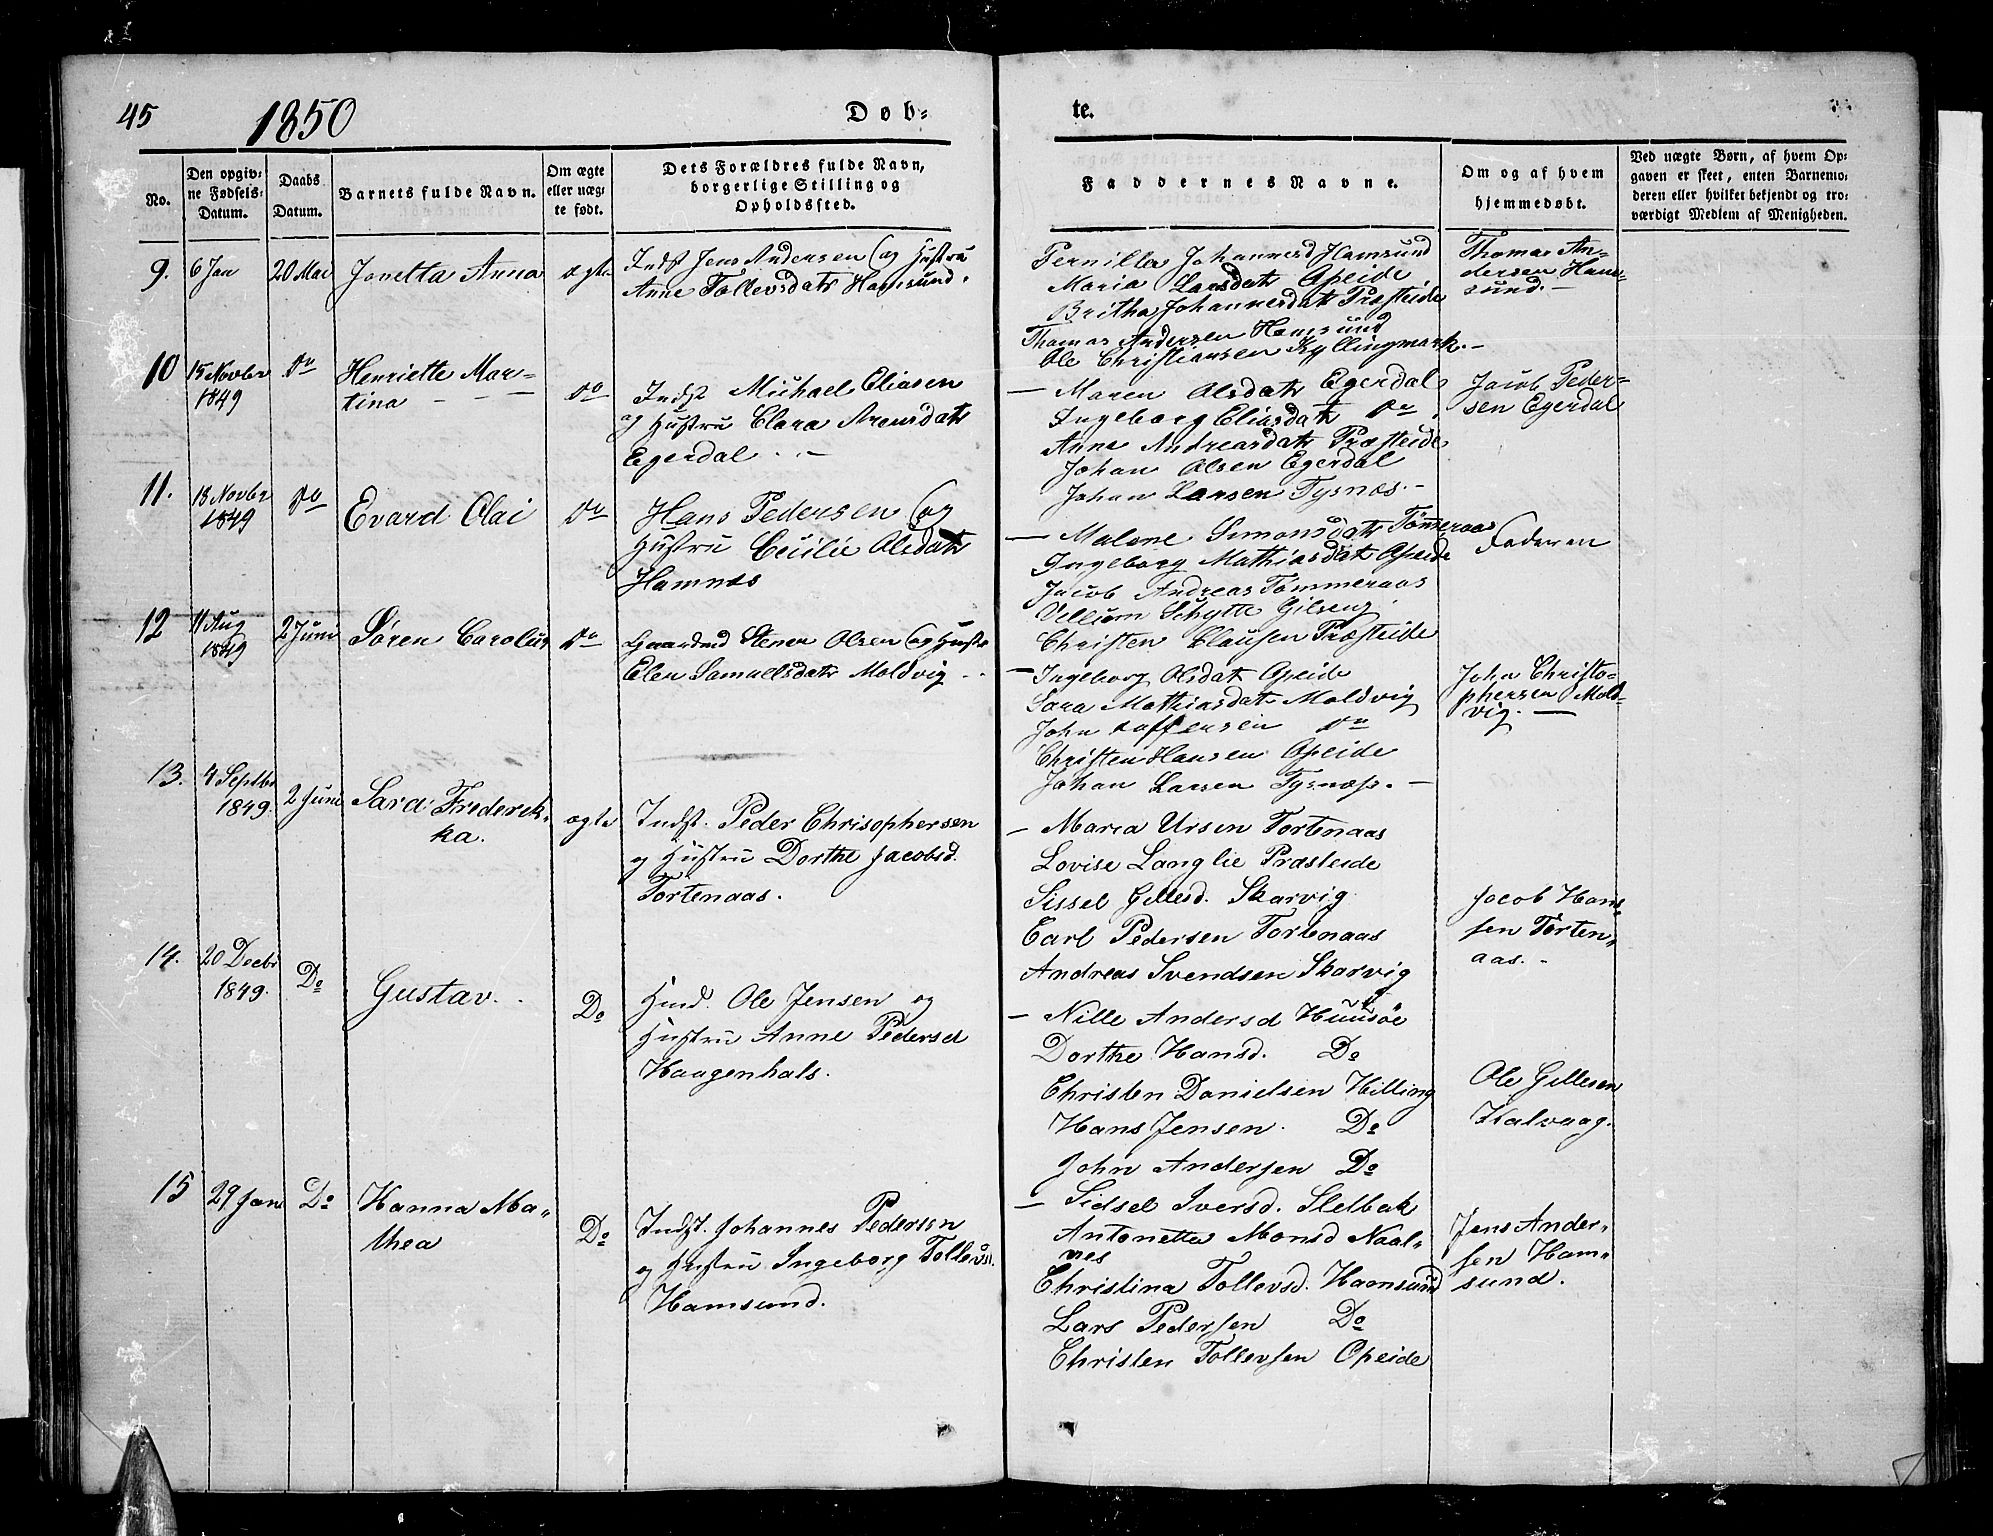 45
1850
Døb-
te.
No.
Den opgiv-
ne Fødsels-
Datum.
Daabs
Datum.
Barnets fulde Navn.
Om ægte
eller uæg-
te født.
Dets Forældres fulde Navn,
borgerlige Stilling og
Opholdssted.
Faddernes Navne.
Om og af hvem
hjemmedøbt.
Ved uægte Børn, af hvem Op-
gaven er skeet, enten Barnemo-
deren eller hvilket bekjendt og tro-
værdigt Medlem af Menigheden.
9.
6 Jan
20 Mai
Jonetta Anna
ægte
Indst Jens Andersen og Hustru
Anne Tollevsdatr Hamsund.
Pernilla Johannesd Hamsund
Maria Larsdatr Opeide
Britha Johannesdatr Præsteide
Thomas Andersen Hamsund
Ole Christiansen Kyllingmark. -
Thomas An-
dersen Ham-
sund. -
10
15 Novbr
1849
Do
Henriette Mar-
tina - - -
Do
Indst Michael Eliasen
og Hustru Clara Arensdatr
Egerdal . . -
- Maren Olsdatr Egerdal
Ingeborg Eliasdatr Do
Anne Andreasdatr Præsteide
Johan Olsen Egerdal
Johan Larsen Tysnæs. -
Jacob Peder-
sen Egerdal
11.
18 Novbr
1849
Do
Evard Olai
Do
Hans Pedersen og
Hustru Cecilie Olsdatr
Hamnæs
- Malene Simonsdatr Tømmeraas
Ingeborg Mathiasdatr Opeide
Jacob Andreas Tømmeraas
Vellum Schytte
Christen Clausen Præsteide
Faderen
12
11 Aug
1849
2 Juni
Søren Carolus
Do
Gaardmd Stener Olsen og Hustr
Elen Samuelsdatr Moldvig - .
- Ingeborg Olsdatr Opeide
Sara Mathiasdatr Moldvig
John Do
Christen Hansen Opeide
Johan Larsen Tysnæs. -
John Christo-
phersen Mold-
vig. -
13.
4 Septbr
1849.
2 Juni
Sara Frederik-
ka.
ægte
Indst. Peder Chrisophersen
og Hustru Dorthe Jacobsd.
Tortenaas.
- Maria Ursin Tortenaas
Lovise Langlie Præsteide
Sissel Gillesd. Skarvig
Carl Pedersen Tortenaas
Andreas Svendsen Skarvig
Jacob Han-
sen Torten-
aas. -
14.
20 Decbr
1849.
Do
Gustav.
Do
Hmd. Ole Jensen og
Hustru Anne Pedersd
Haagenhals.
- Nille Andersd Huusøe
Dorthe Hansd. Do
Christen Danielsen Hilling
Hans Jensen. Do
John Andersen Do
Ole Gillesen
Kalvaag.
15
29 Jan
Do
Hanna Ma-
thea
Do
Indst. Johannes Pedersen
og Hustru Ingeborg Tollevsd.
Hamsund.
- Sidsel Iversd. Slelbak
Antonetta Monsd Naal-
nes
Christina Tollevsd. Hamsund
Lars Pedersen Do
Christen Tollevsen Opeide
Jens Ander-
sen Ham-
sund.